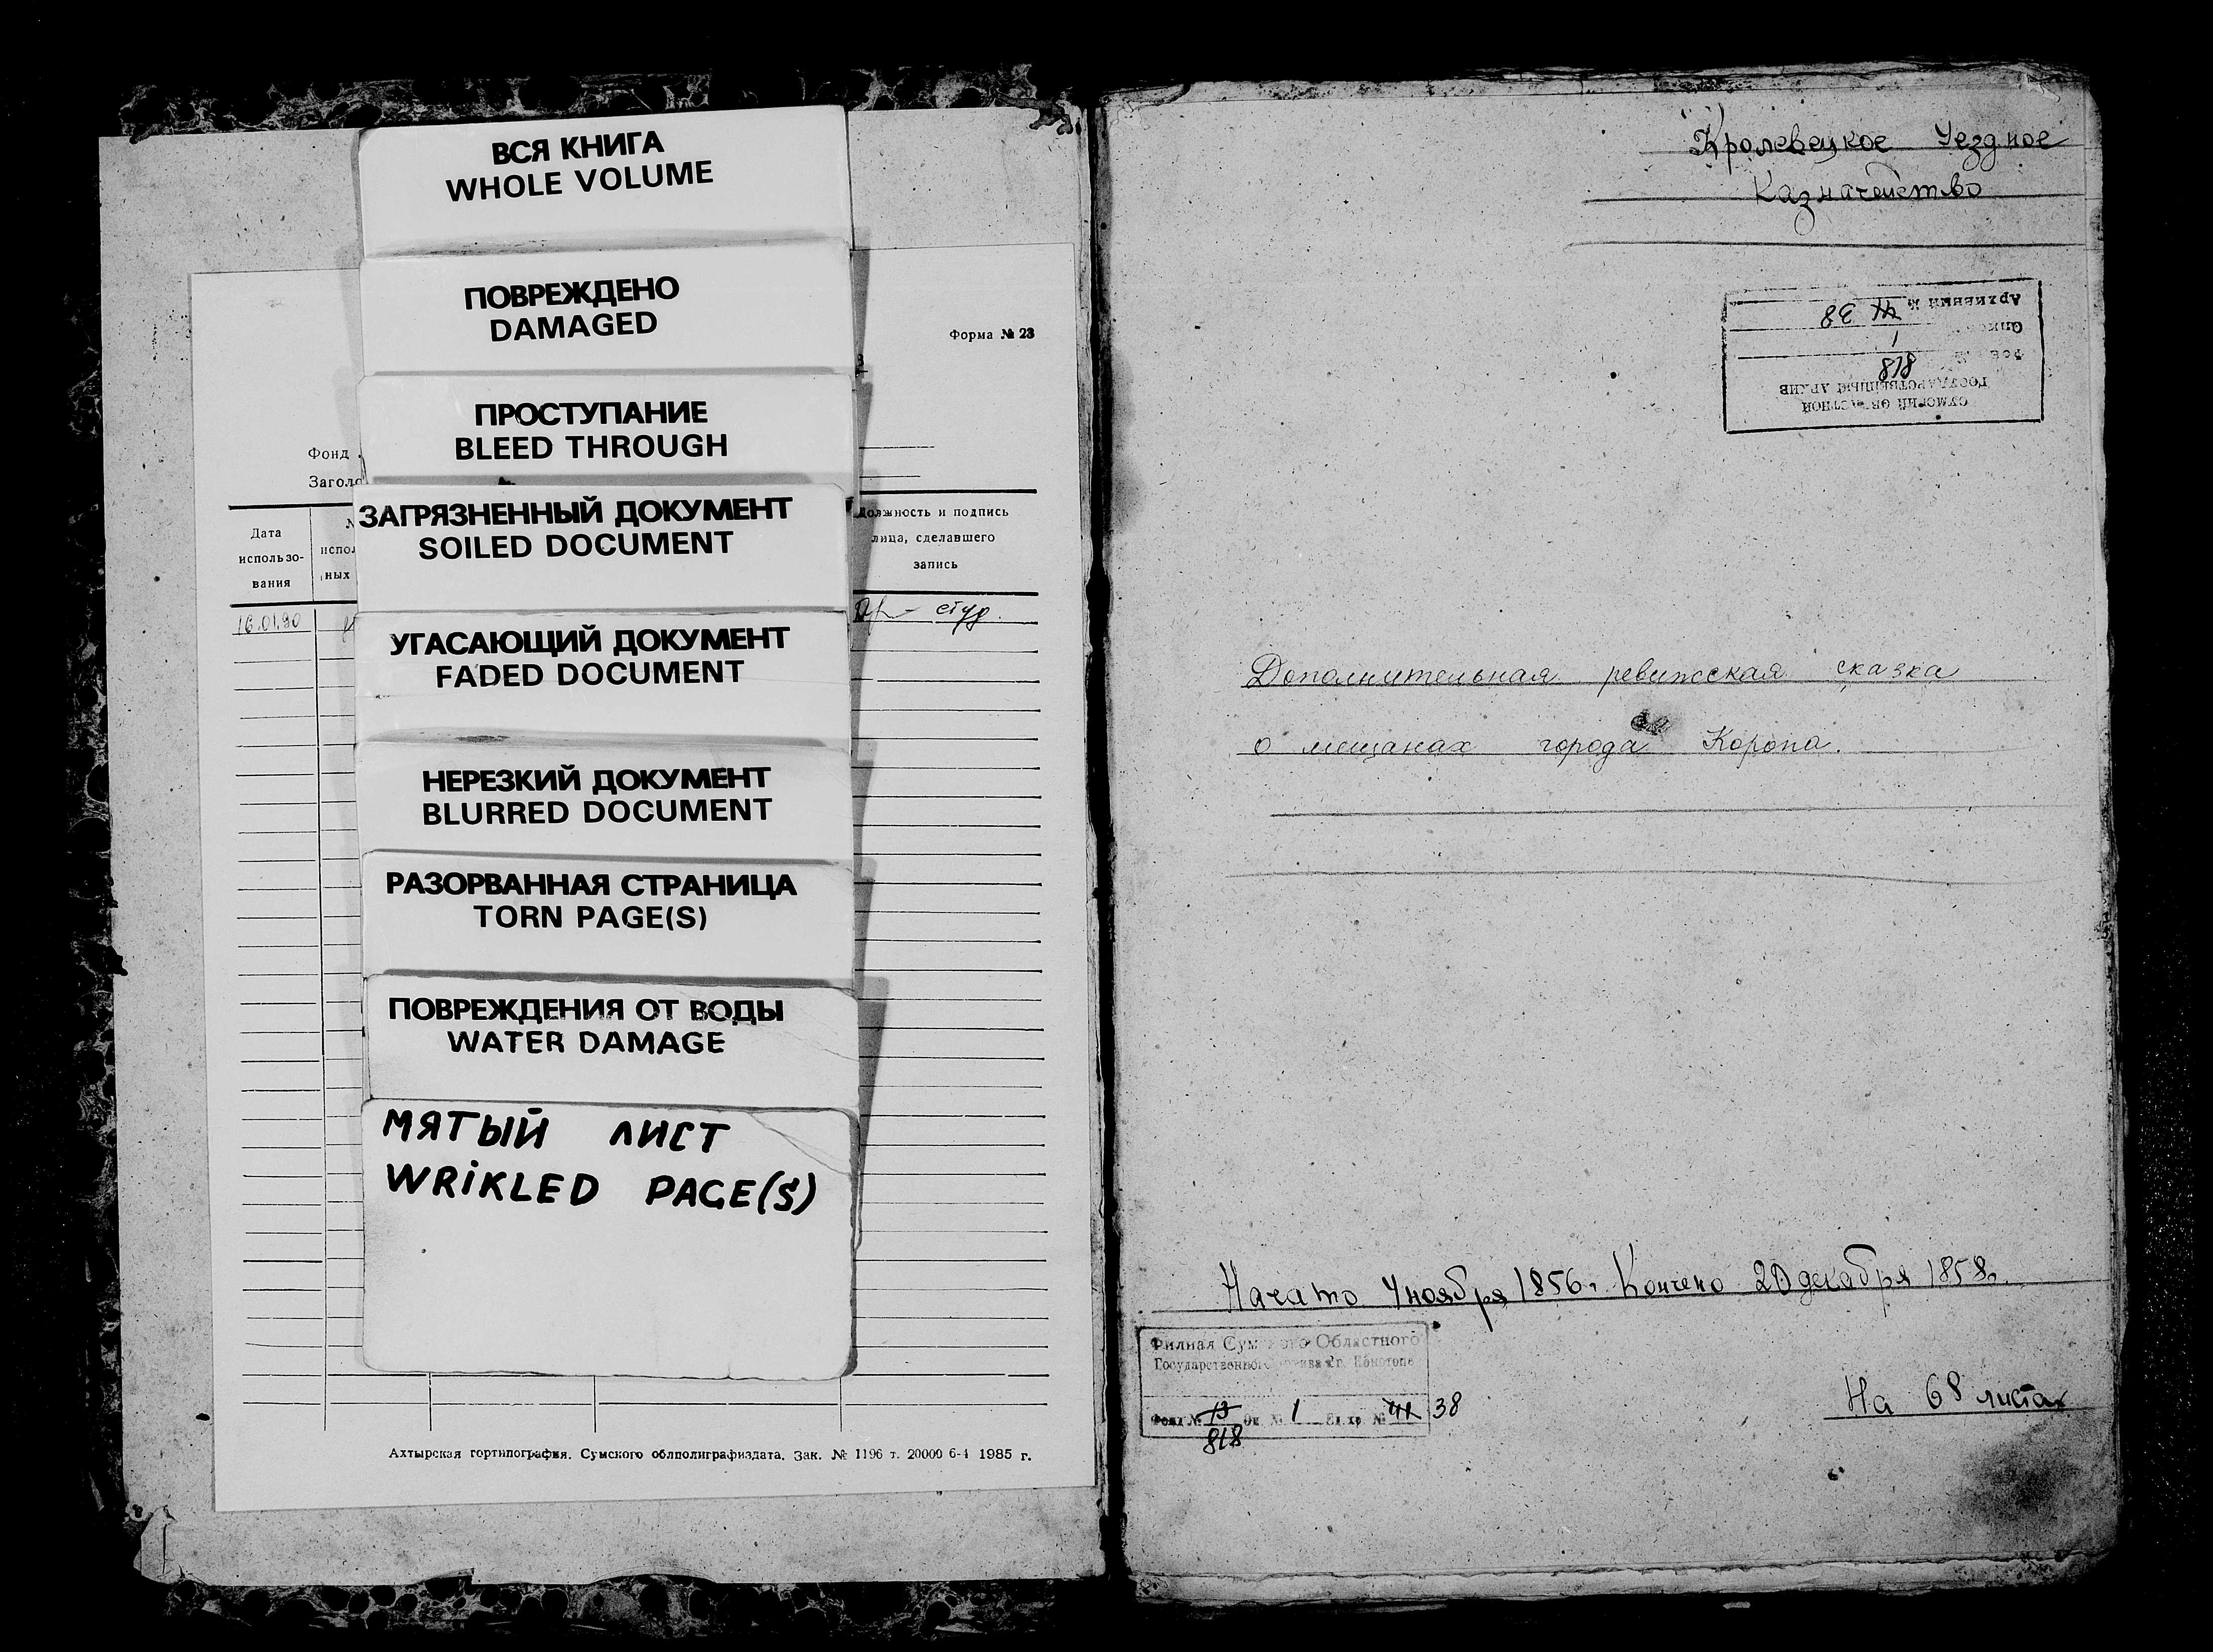 ВСЯ КНИГА
WHOLE VOLUME
ПОВРЕЖДЕНО
DAMAGED
ПРОСТУПАНИЕ
BLEED THROUGH
ЗАГРЯЗНЕННЫЙ ДОКУМЕНТ
SOILED DOCUMENT
УГАСАЮЩИЙ ДОКУМЕНТ
FADED DOCUMENT
НЕРЕЗКИЙ ДОКУМЕНТ
BLURRED DOCUMENT
РАЗОРВАННАЯ СТРАНИЦА
TORN PAGE(S)
ПОВРЕЖДЕНИЯ ОТ ВОДЫ
WATER DAMAGE
МЯТЫЙ ЛИСТ
WRIKLED PAGE(S)
Форма № 23
Фонд
Заголо
Дата
использо-
вания
испол
ных
Должность и подпись
лица, сделавшего
запись
16.01.90
студ.
Ахтырская гортипография. Сумского облполиграфиздата. Зак. № 1196 т. 20000 6-4 1985 г.
Кролевецкое Уездное
Казначейство
СУМСКИЙ ОБЛАСТНОЙ
ГОСУДАРСТВЕННЫЙ АРХИВ
818
Опись 1
Архивный № 41 38
Дополнительная ревижская сказка
о мещанах города Коропа.
Начато 4 ноября 1856 г. Кончено 20 декабря 1858 г.
Филиал Сумского Областного
Государственного архива в г. Конотопе
Фонд № 13 Оп. № 1 Ед. хр. № 41 38
818
На 68 листах